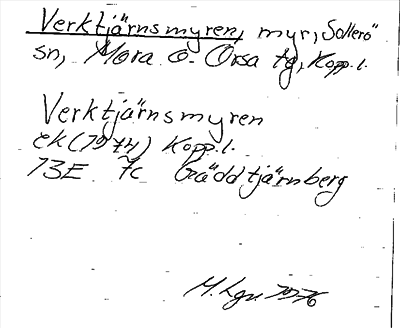 Verktjärnsmyren, myr, Sollerö
sn, Mora o. Orsa tg, Kopp. l.
Verktjärnsmyren
ek (1974) Kopp. l.
13E 7c Gäddtjärnberg
M. Lgn 1976